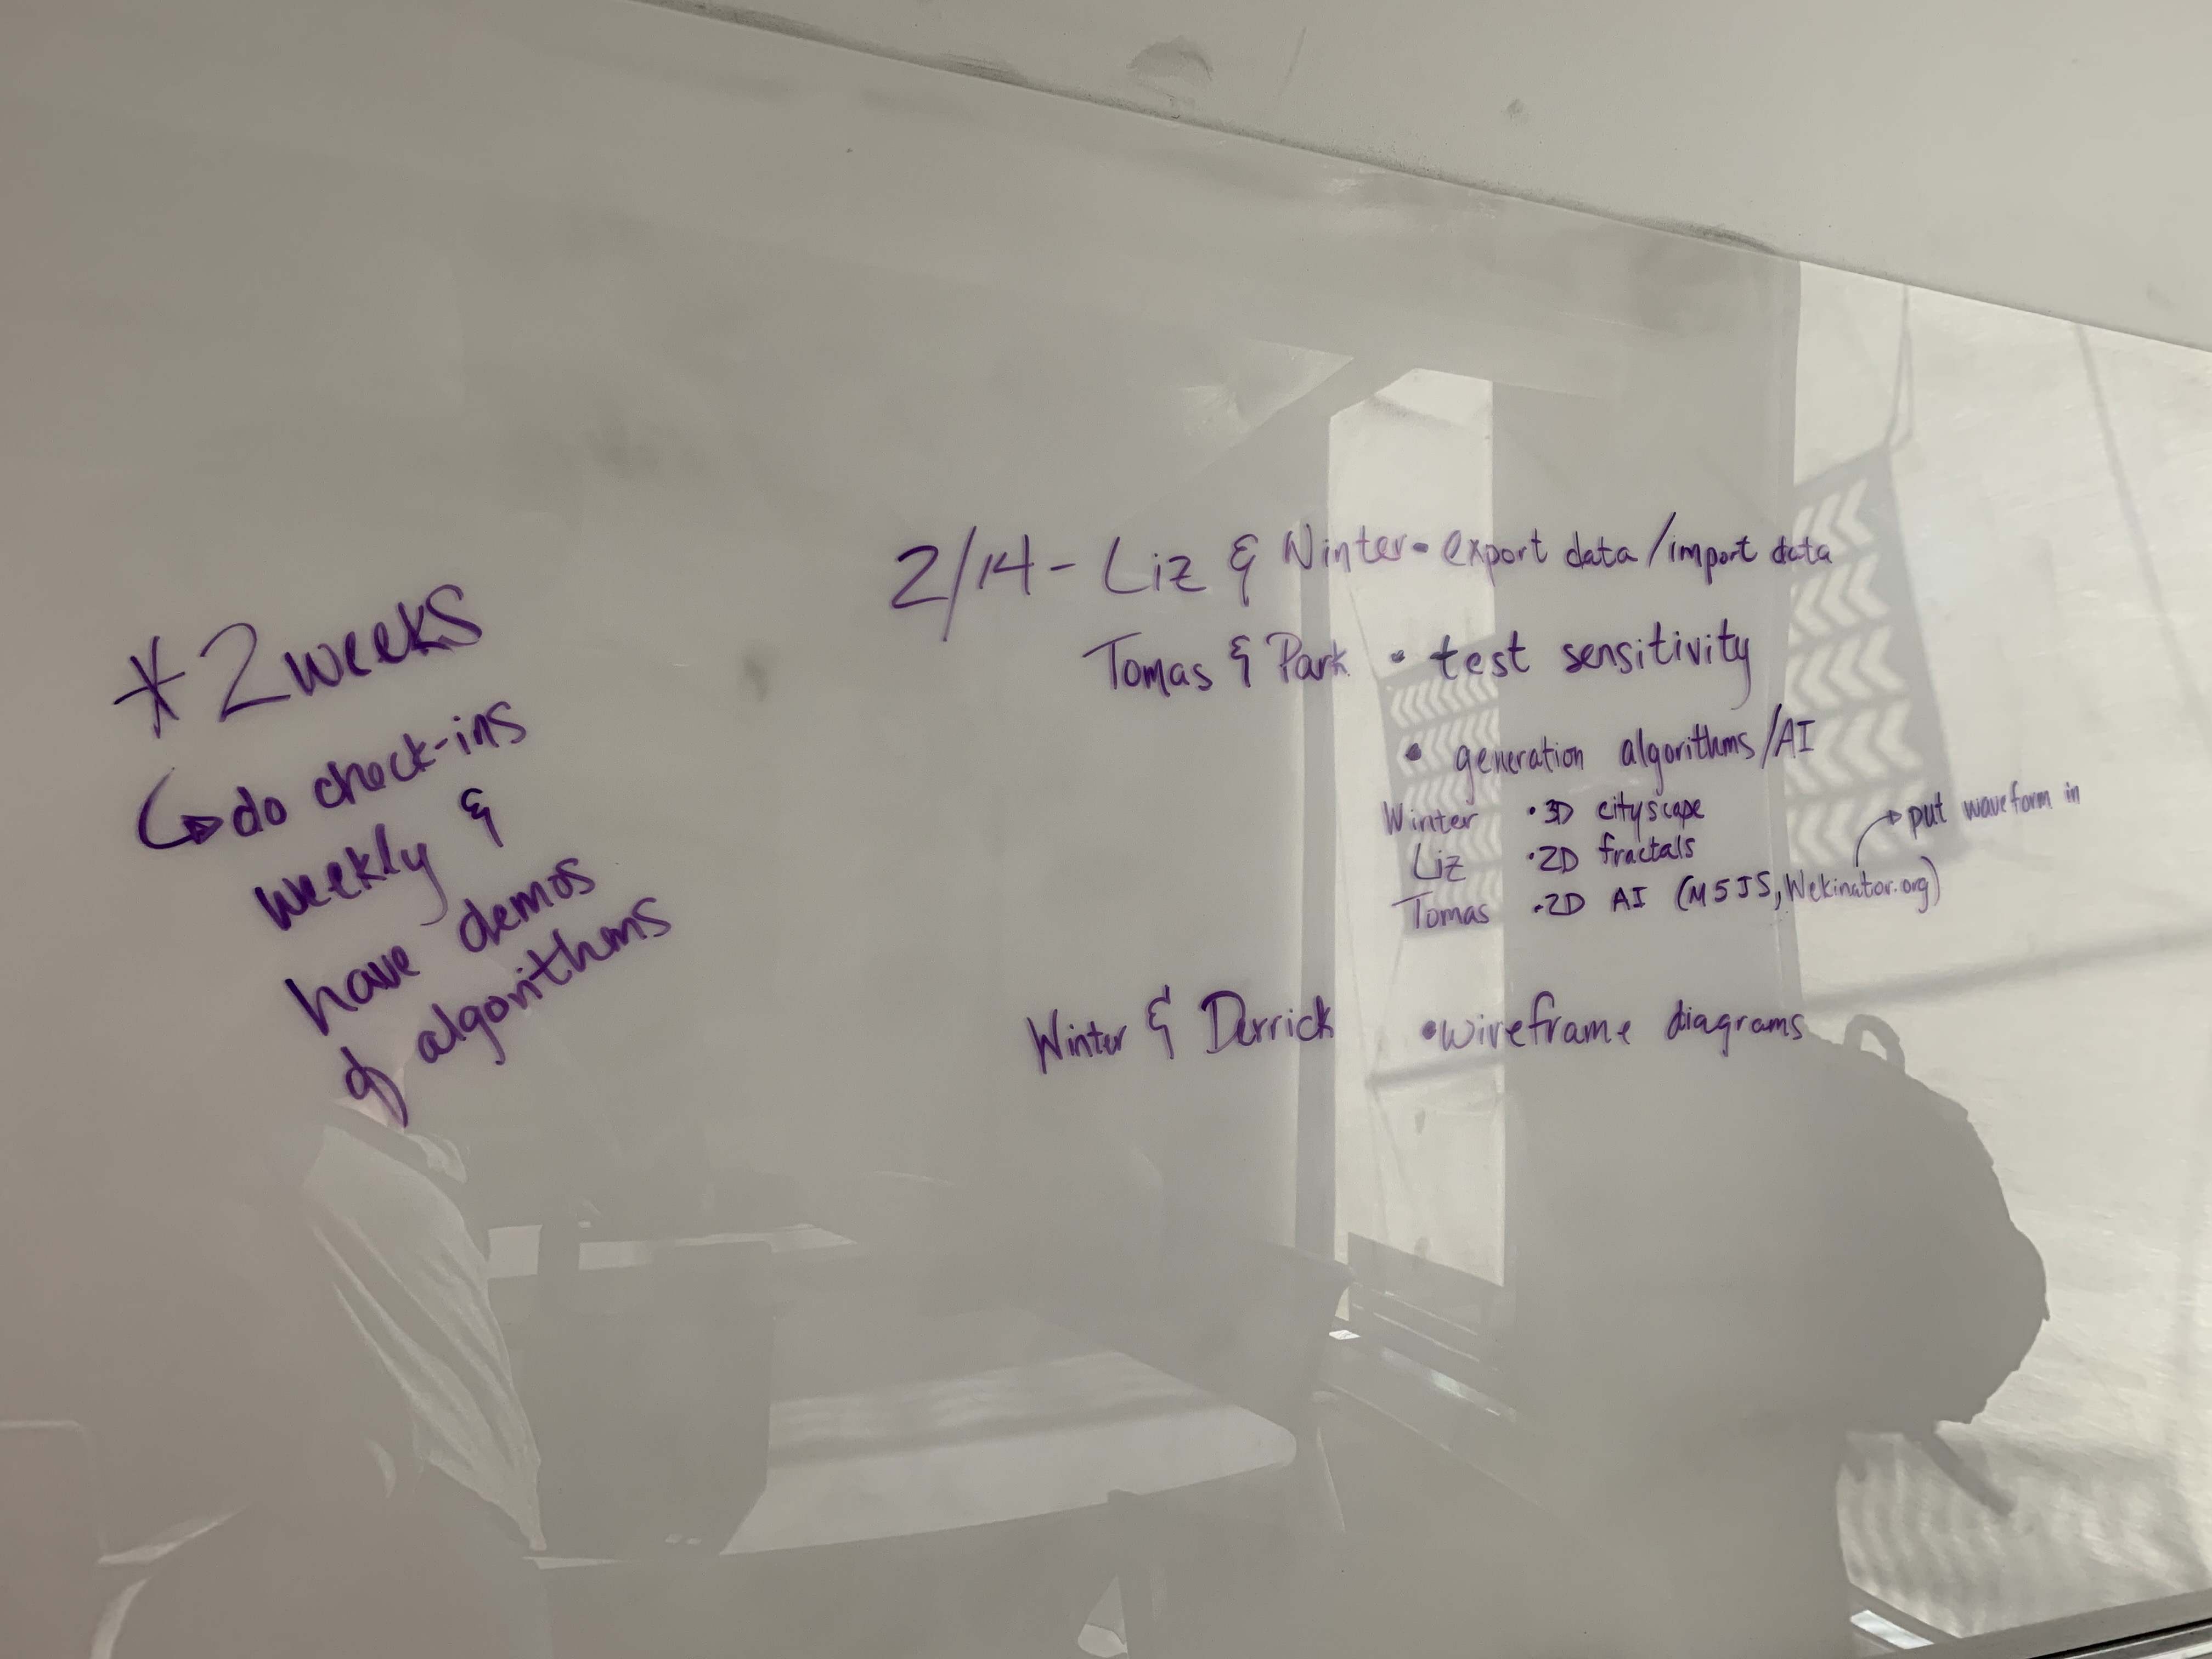 * 2 weeks
do check-ins
weekly &
have demos
of algorithms
2/14 - Liz & Winter • export data/import data
Tomas & Park • test sensitivity
• generation algorithms/AI
Winter • 3D cityscape
Liz • 2D fractals
Tomas • 2D AI (M5JS, Wekinator.org)
put waveform in
Winter & Derrick • wireframe diagrams